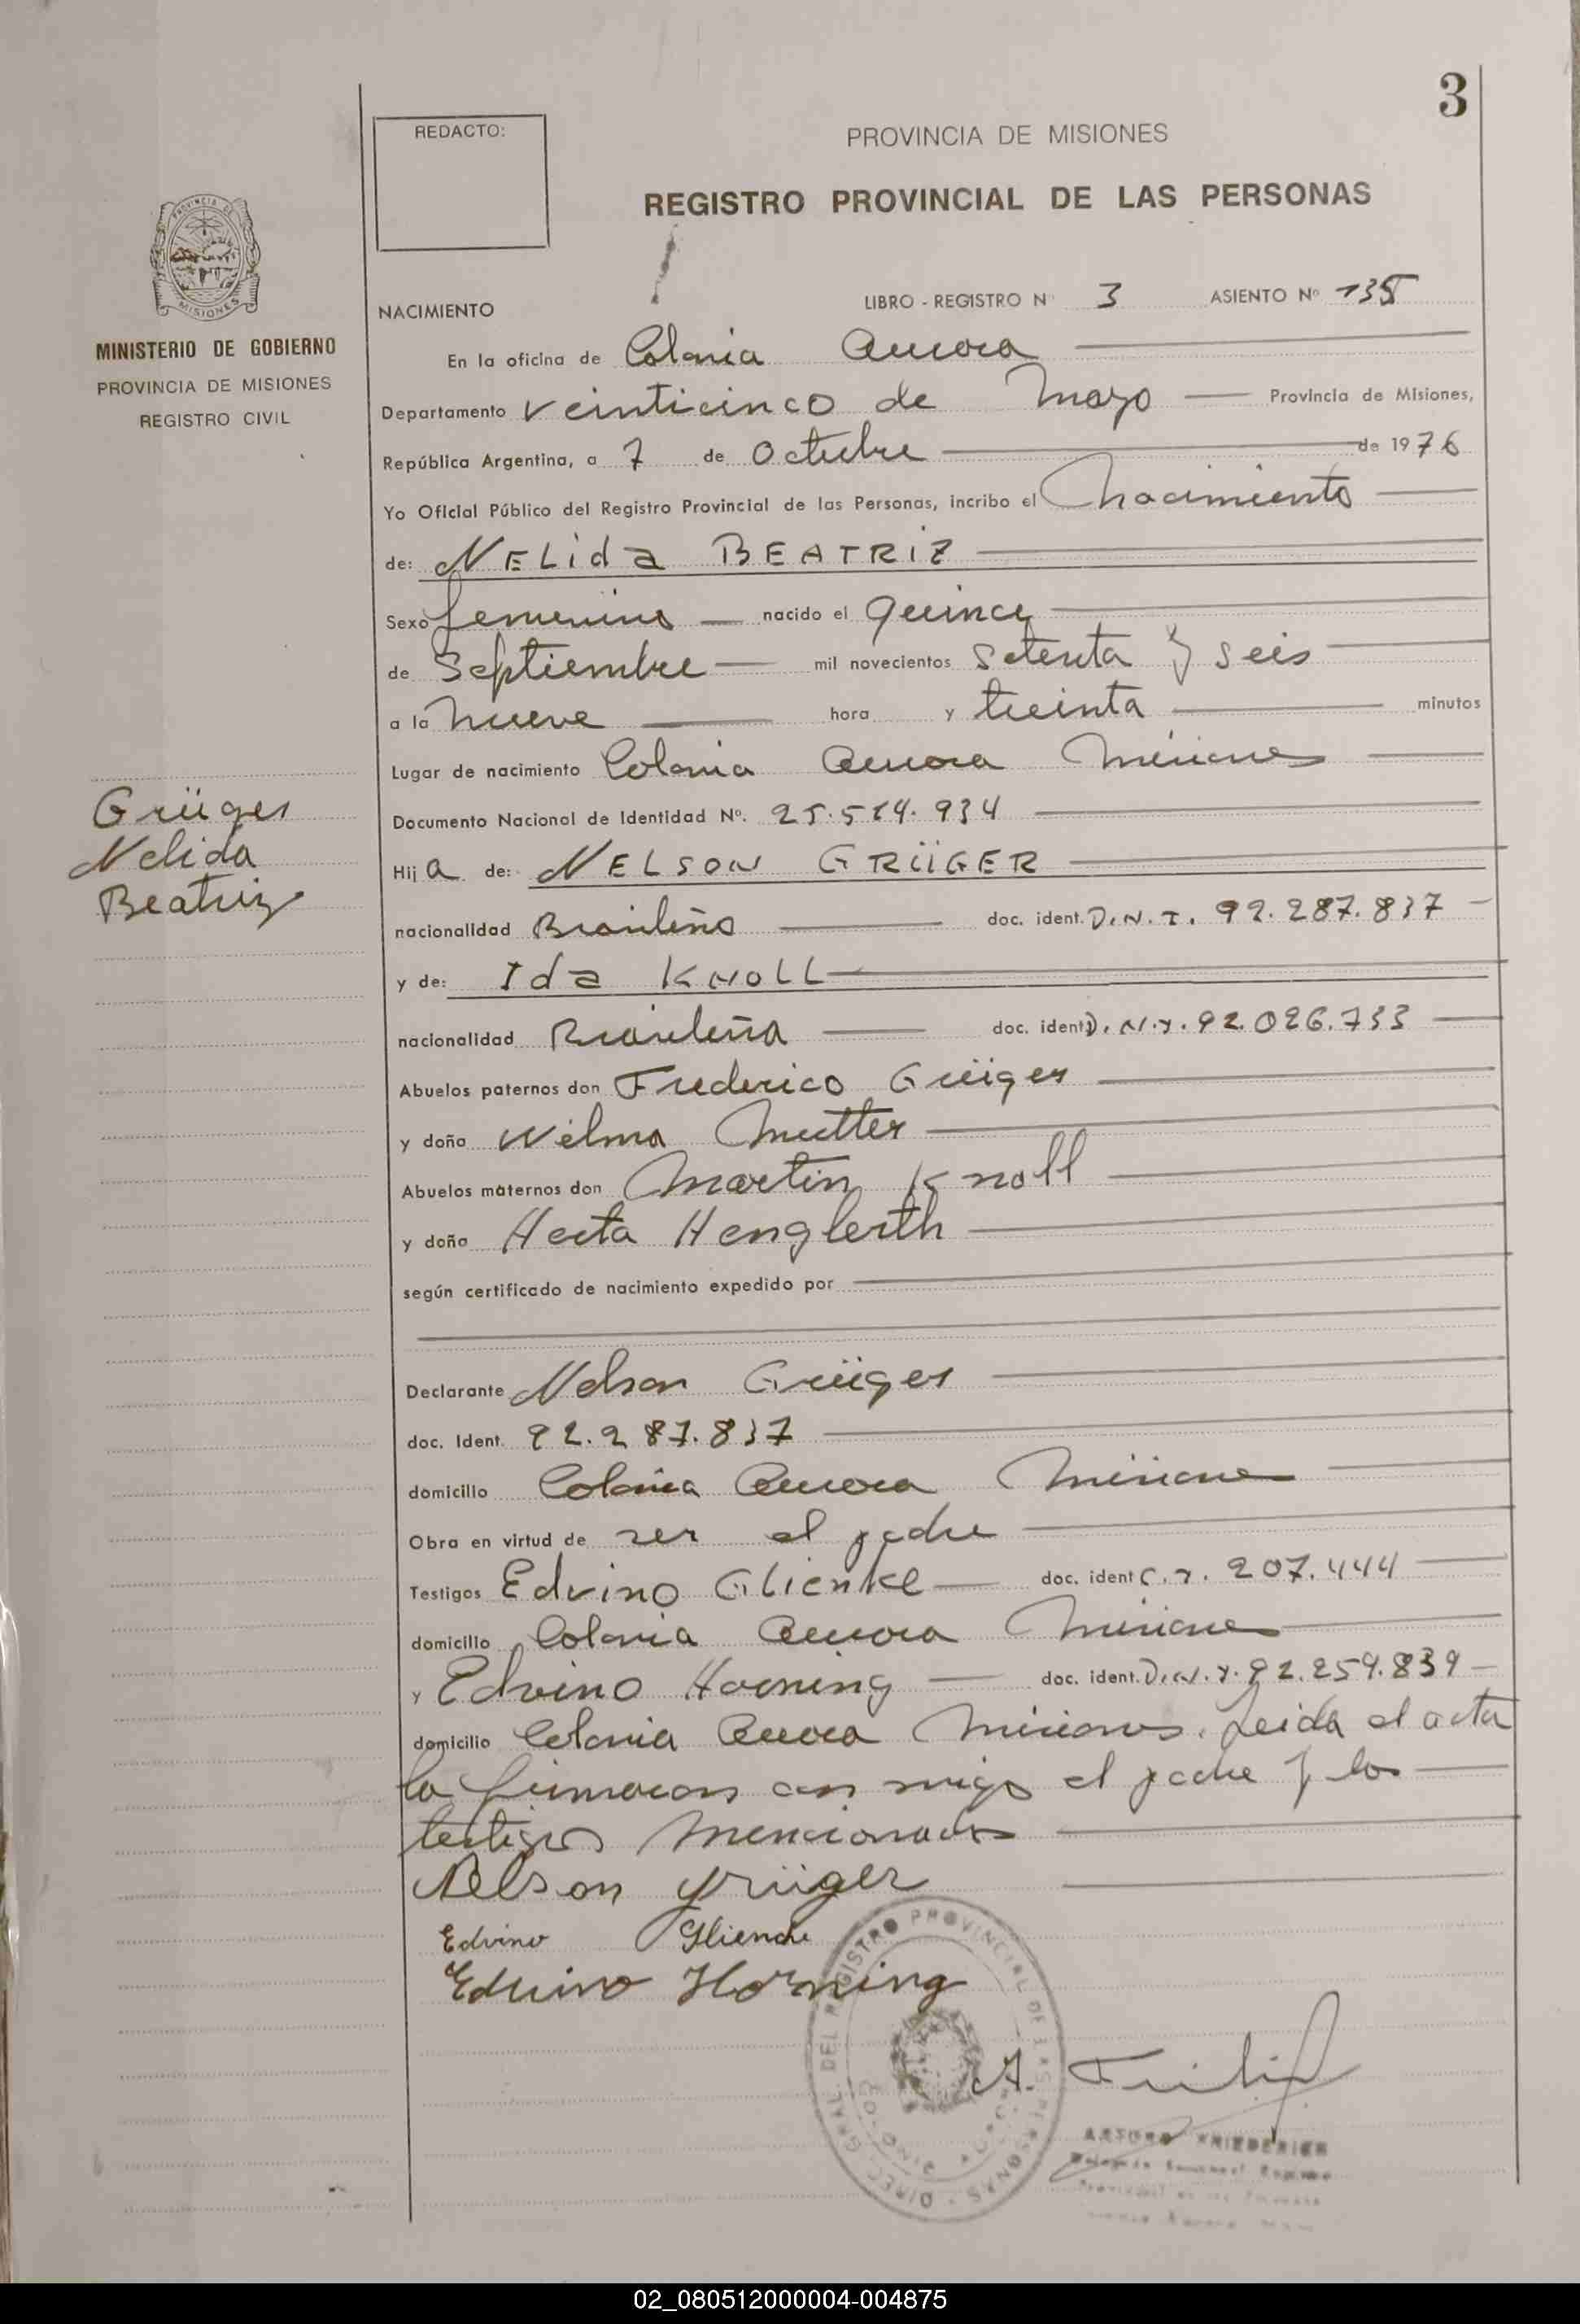 3
REDACTO:
PROVINCIA DE MISIONES
REGISTRO PROVINCIAL DE LAS PERSONAS
MISIONES
MINISTERIO DE GOBIERNO
PROVINCIA DE MISIONES
REGISTRO CIVIL
NACIMIENTO LIBRO - REGISTRO Nº 3 ASIENTO Nº 135
En la oficina de Colonia Aurora
Departamento Veinticinco de Mayo Provincia de Misiones,
República Argentina, a 7 de Octubre de 1976
Yo Oficial Público del Registro Provincial de las Personas, incribo el Nacimiento
de: NELida BEATRIZ
Sexo femenino nacido el quince
de Septiembre mil novecientos setenta y seis
a la nueve hora y treinta minutos
Lugar de nacimiento Colonia Aurora Misiones
Grüger
Nelida
Beatriz
Documento Nacional de Identidad Nº. 25.514.934
Hija de: NELSON GRÜGER
nacionalidad Brasileño doc. ident. D.N.I. 92.287.837
y de: Ida KNOLL
nacionalidad Brasileña doc. ident D.N.I. 92.026.733
Abuelos paternos don Frederico Grüger
y doña Wilma Mutter
Abuelos maternos don Martin Knoll
y doña Herta Henglerth
según certificado de nacimiento expedido por
Declarante Nelson Grüger
doc. Ident. 92.287.837
domicilio Colonia Aurora Misiones
Obra en virtud de ser el padre
Testigos Edvino Glienke doc. ident C.I. 207.444
domicilio Colonia Aurora Misiones
y Edvino Horning doc. ident. D.N.I. 92.259.839
domicilio Colonia Aurora Misiones. Leida el acta
la firmaron con migo el padre y los
testigos mencionados
Nelson Grüger
Edvino Glienke
Edvino Horning
DIREC. GRAL. DEL REGISTRO PROVINCIAL DE LAS PERSONAS
ARTURO FRIEDERICH
02_080512000004-004875